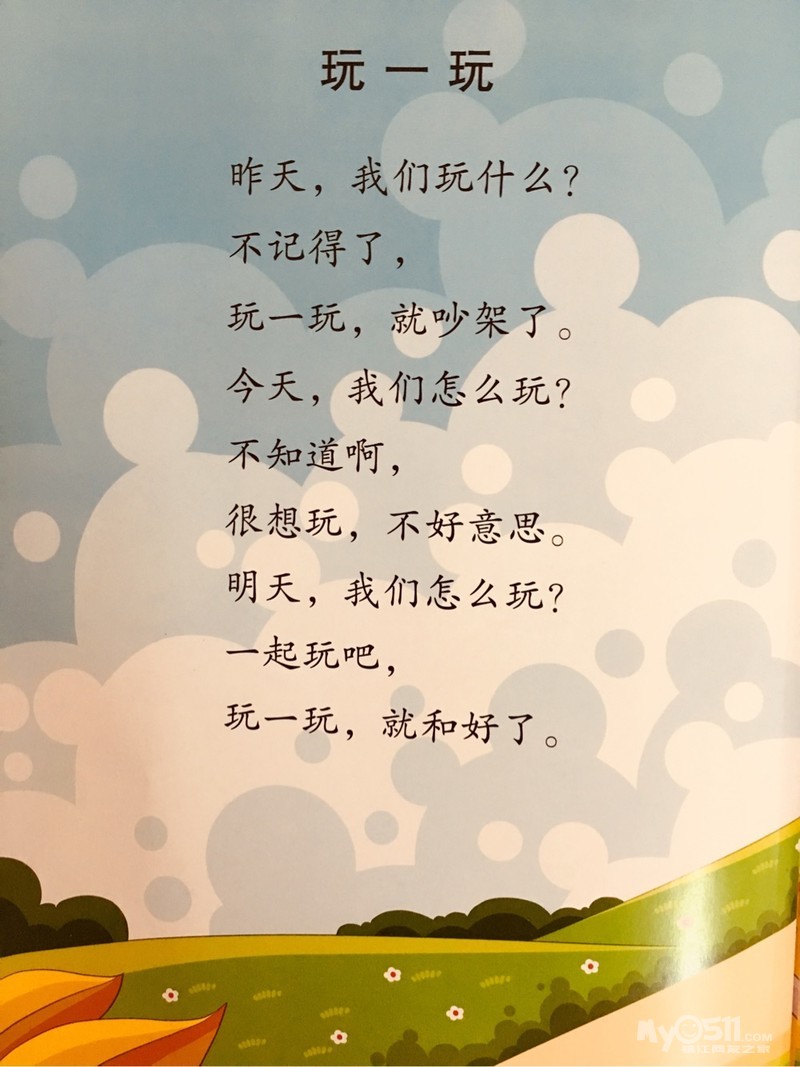 玩一玩
昨天，我们玩什么？
不记得了，
玩一玩，就吵架了。
今天，我们怎么玩？
不知道啊，
很想玩，不好意思。
明天，我们怎么玩？
一起玩吧，
玩一玩，就和好了。
My0511.COM